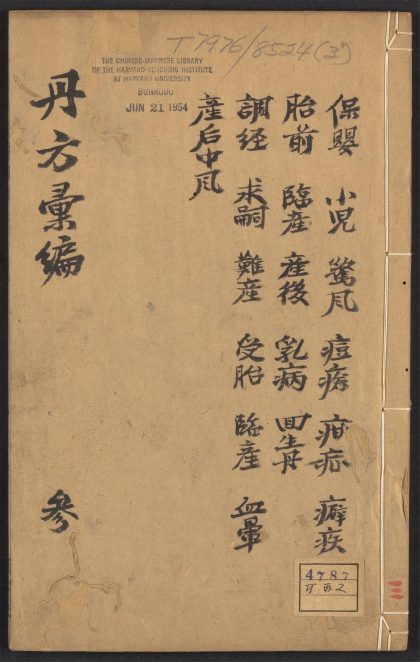 T7976/8524(3)
THE CHINESE-JAPANESE LIBRARY
OF THE HARVARD-YENCHING INSTITUTE
AT HARVARD UNIVERSITY
BUNKODO
JUN 21 1954
保嬰 小児 驚凨 痘疹 疳症 癖疾
胎前 臨産 産後 乳病 回生丹
調経 求嗣 難産 受胎 臨産 血暈
産后中凨
丹方彙編 參
4787